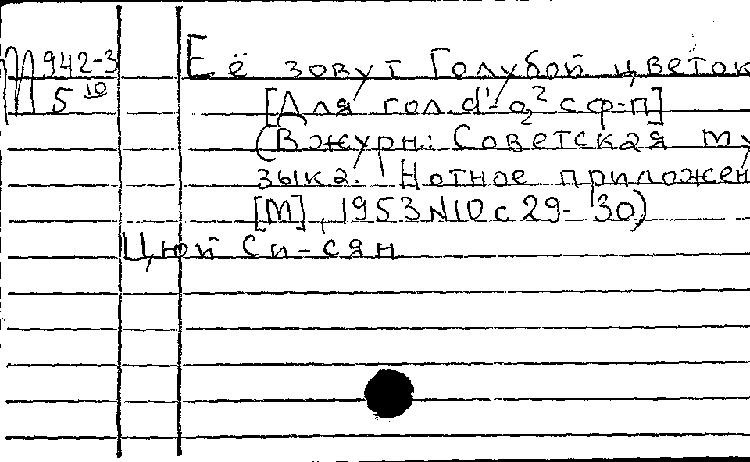 М 942-3
5 10
Её зовут Голубой цветок
[Для гол. d¹-g² с ф-п]
(В журн: Советская му
зыка. Нотное приложен
[М], 1953 N10 с 29-30)
Цюй Си-сян